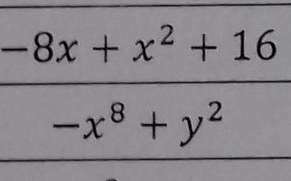 −8x + x² + 16
−x⁸ + y²